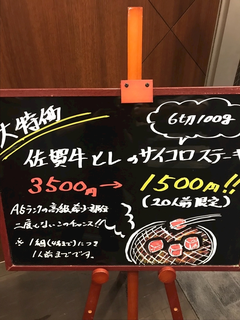 大特価
6切100g
佐賀牛ヒレのサイコロステーキ
3500円→1500円!!
(20人前限定)
A5ランクの高級希少部位
二度とないこのチャンス!!
※1組(4名まで)につき
1人前までです。